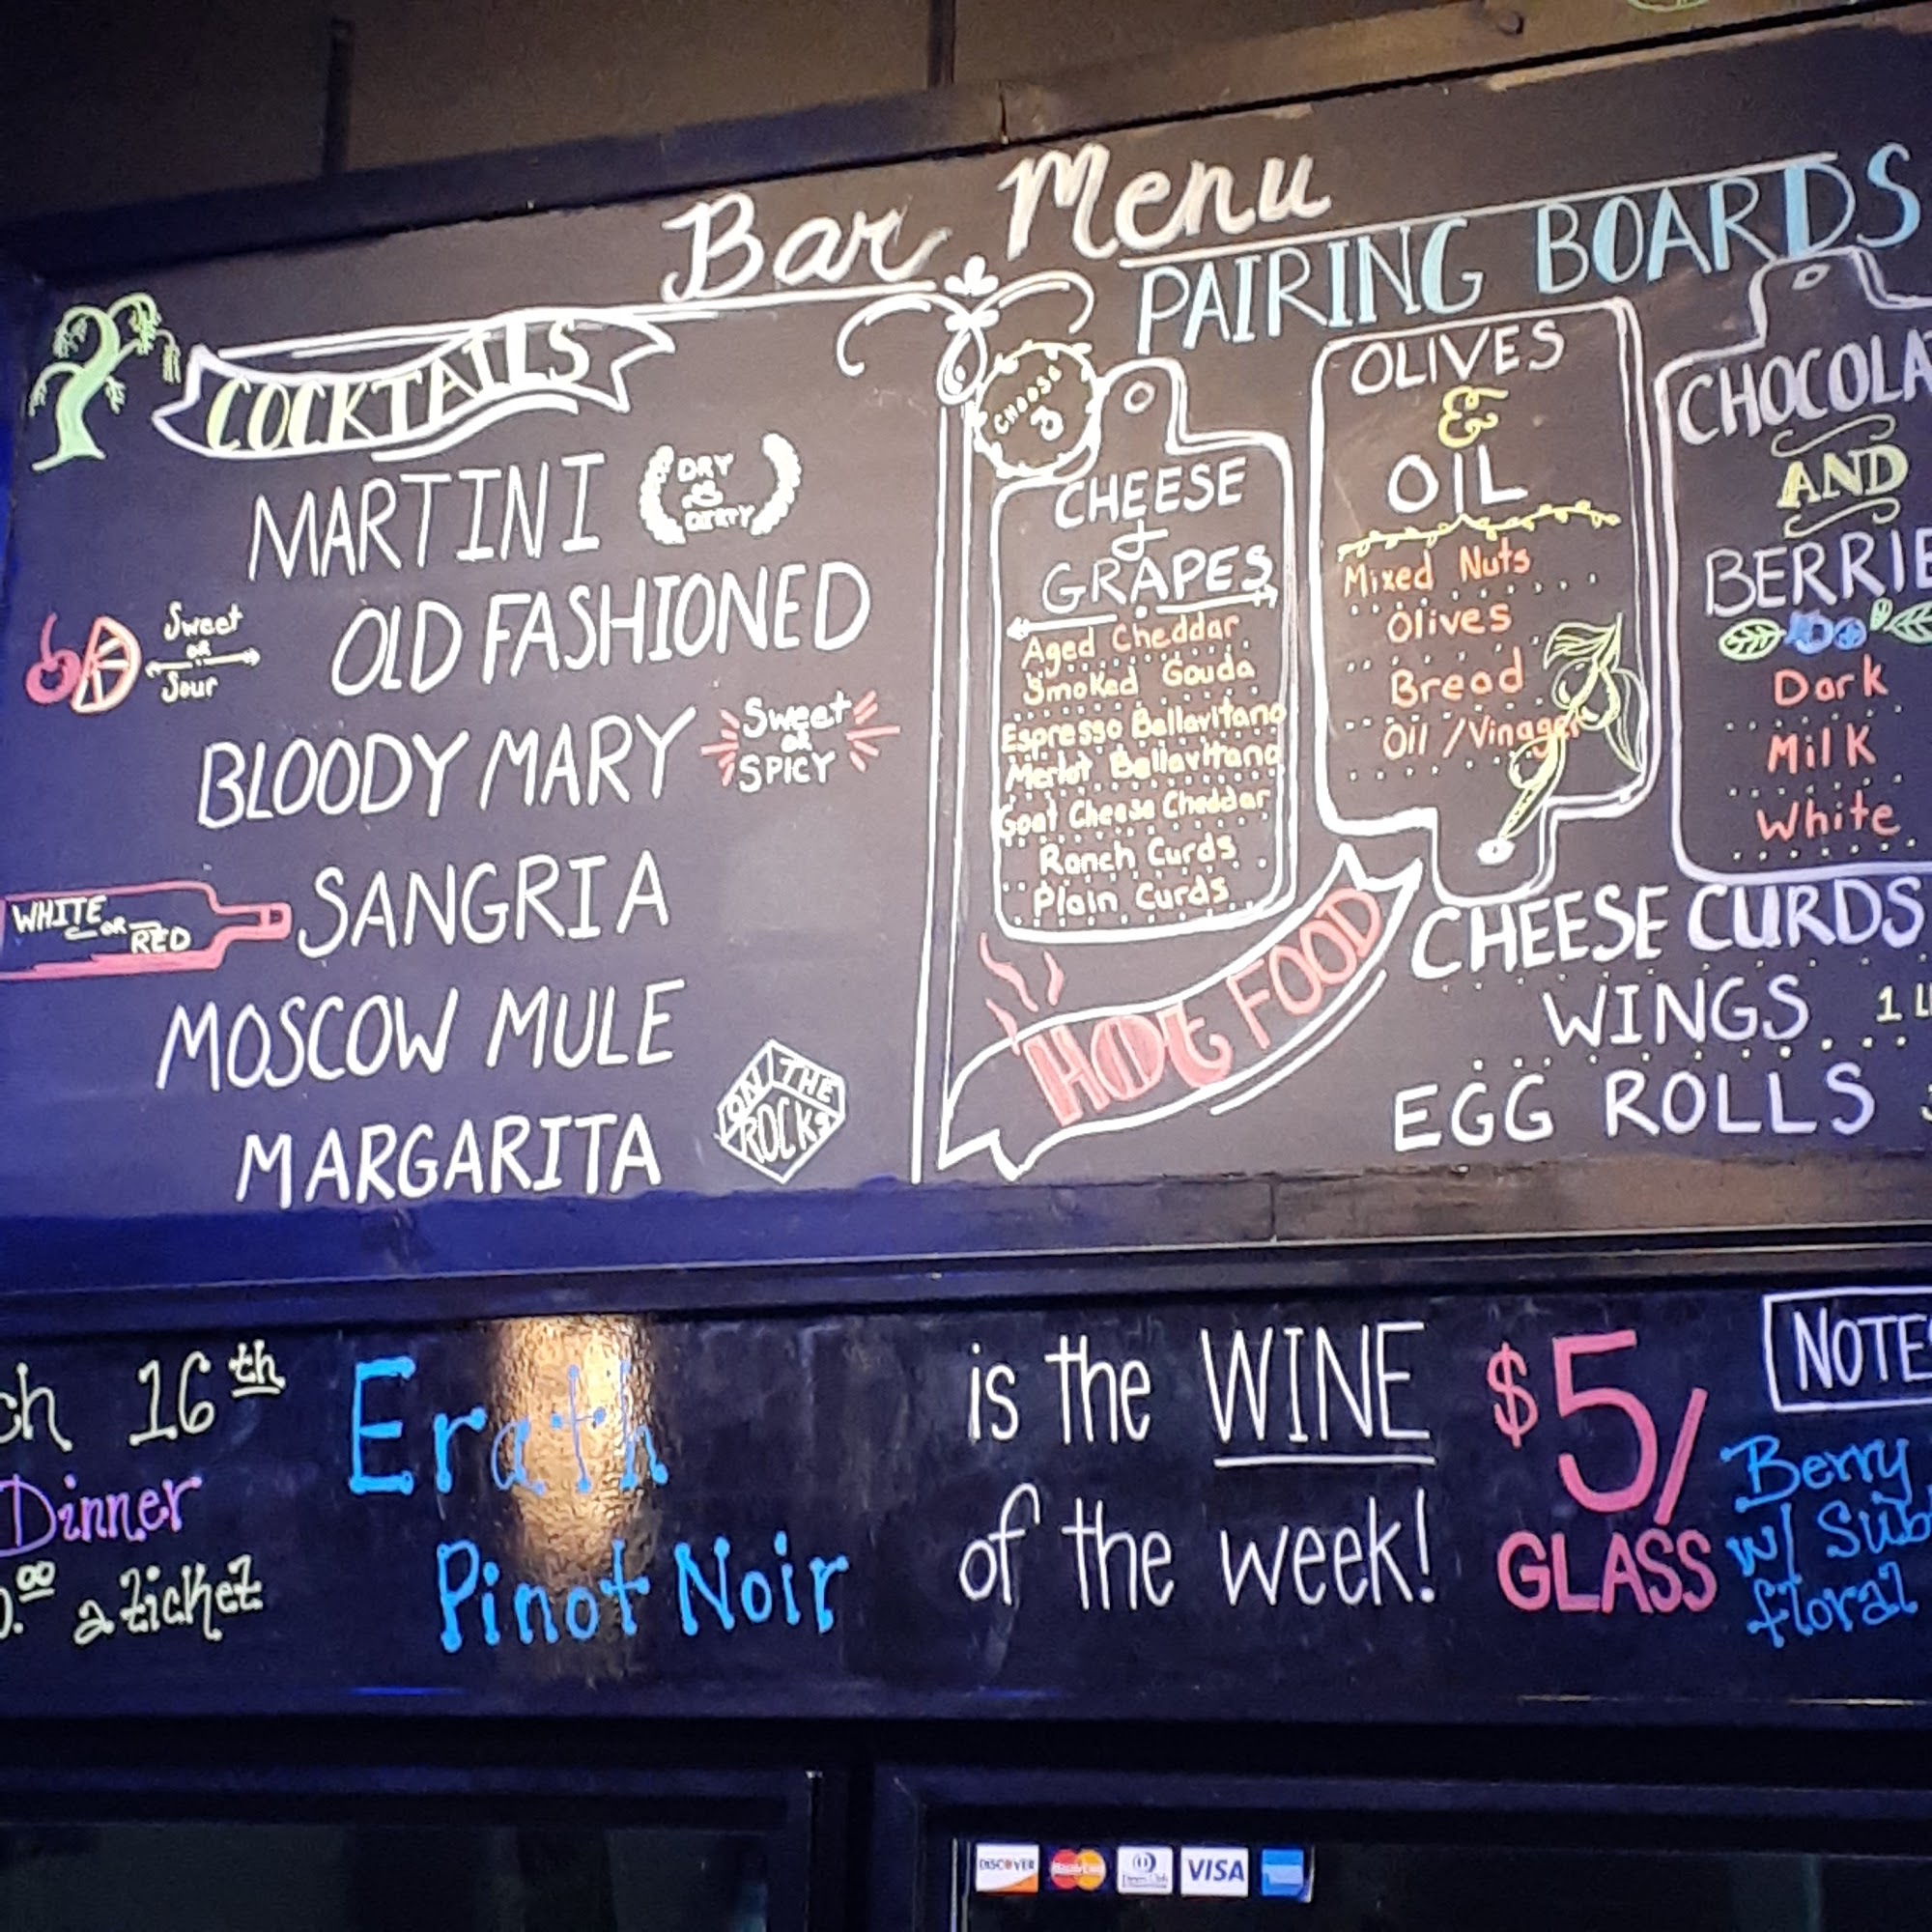 Bar Menu
COCKTAILS
MARTINI
DRY
&
DIRTY
Sweet
or
Sour
OLD FASHIONED
BLOODY MARY
Sweet
or
SPICY
WHITE
OR
RED
SANGRIA
MOSCOW MULE
MARGARITA
ON THE
ROCKS
PAIRING BOARDS
CHOOSE
3
CHEESE
+
GRAPES
Aged Cheddar
Smoked Gouda
Espresso Bellavitano
Merlot Bellavitano
Goat Cheese Cheddar
Ranch Curds
Plain Curds
OLIVES
&
OIL
Mixed Nuts
Olives
Bread
Oil/Vinager
CHOCOLA
AND
BERRIE
Dark
Milk
White
HOt FOOD
CHEESE CURDS
WINGS 1 L
EGG ROLLS
ch 16th
Dinner
0.00 a ticket
Erath
Pinot Noir
is the WINE
of the week!
$5/
GLASS
NOTE
Berry
w/ Sub
floral
DISCOVER
MasterCard
Diners Club
VISA